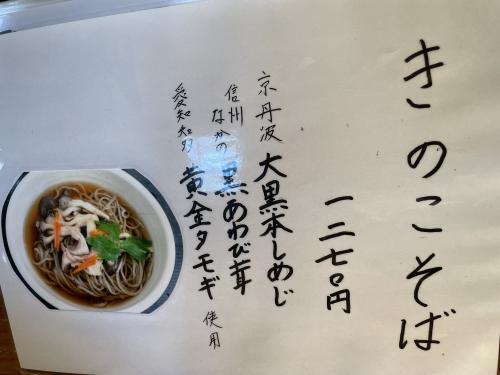 きのこそば
一二七〇円
京丹波 大黒本しめじ
信州なかの 黒あわび茸
愛知知多 黄金タモギ 使用